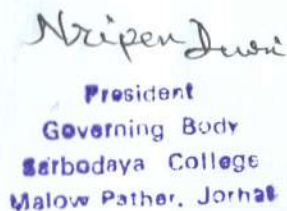 Nripen Dwri
President
Governing Body
Sarbodaya College
Malow Pather, Jorhat